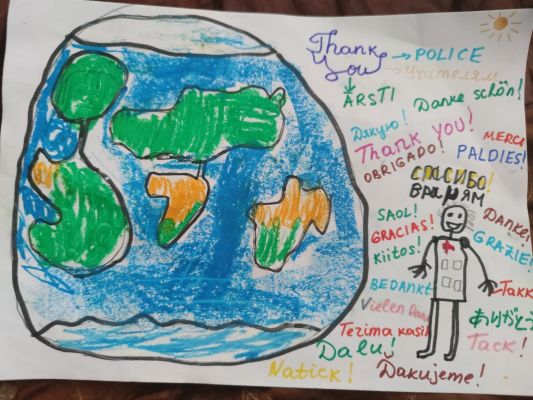 Thank You → POLICE
→ Учителям
ĀRSTI
Danke schön!
Дякую!
Thank you!
MERCI
OBRIGADO!
PALDIES!
СПАСИБО!
ВРАЧЯМ
SAOL!
Danke!
GRACIAS!
GRAZIE!
Kiitos!
BEDANKT
Takk
Vielen Dank
ありがとう
Terima kasih
Tack!
Dalu!
Natick!
Dakujeme!